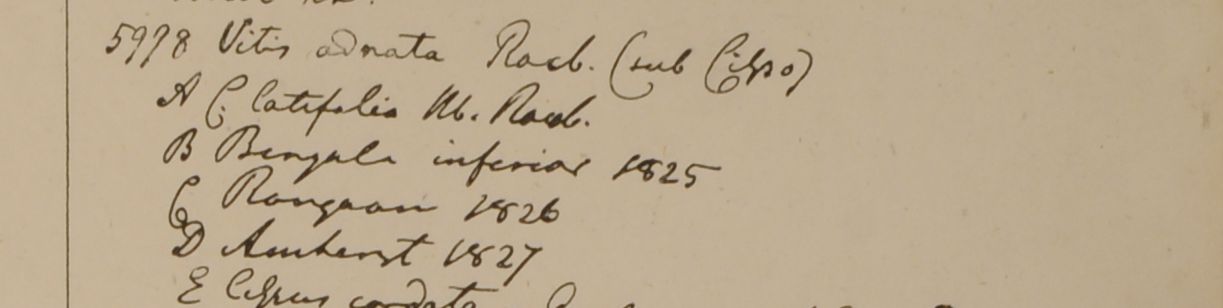 5998 Vitis adnata Roxb. (sub Cißo)
A C. latifolia Hb. Roxb.
B Bengala inferior 1825
C Rangoon 1826
D Amherst 1827
E Cißus cordata